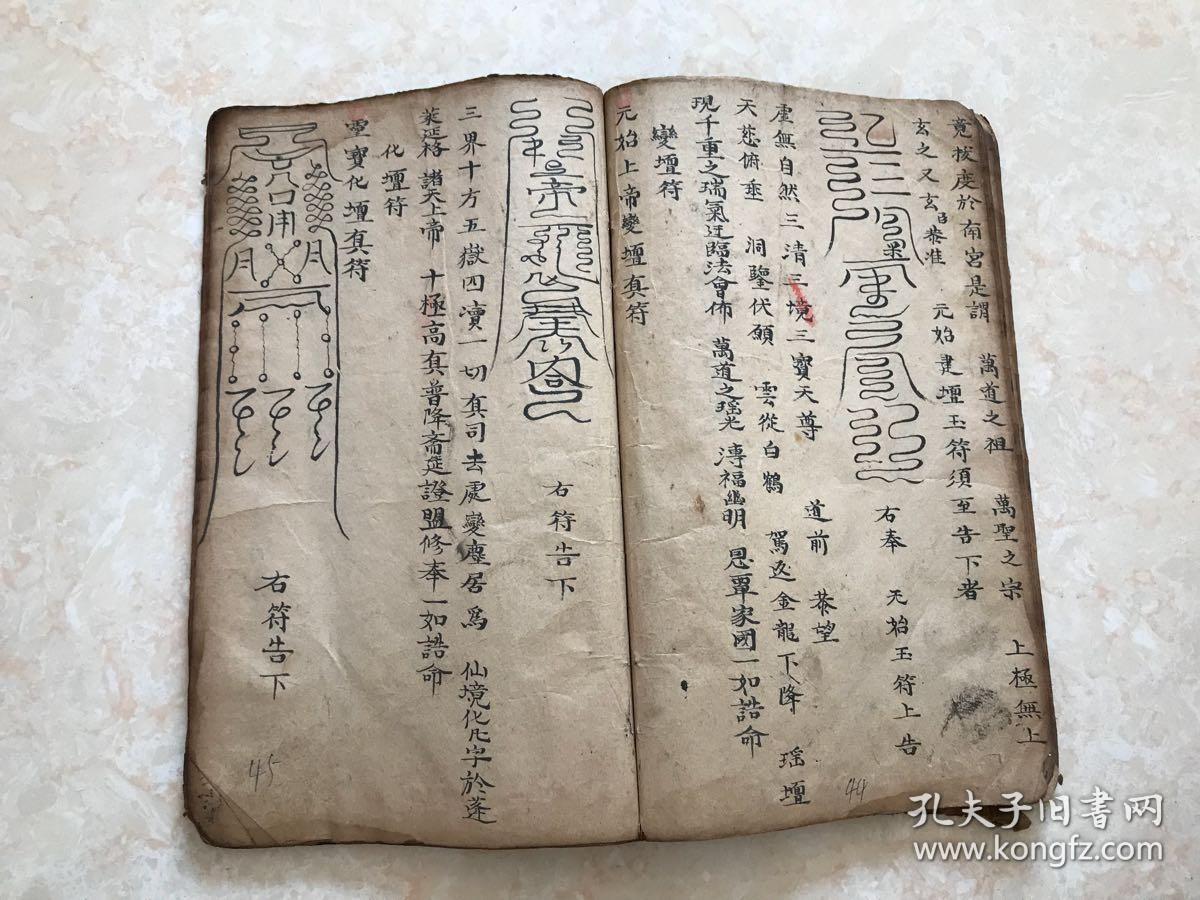 竟拔度於南宮是謂　萬道之祖　萬聖之宗　上極無上
玄之又玄臣恭准　元始建壇玉符須至告下者
右奉　元始玉符上告
虛無自然三清三境三寶天尊　道前　恭望
天慈俯垂　洞鑒伏願　雲從白鶴　駕返金龍下降　瑶壇
現千重之瑞氣迂臨法會佈　萬道之瑶光　溥福幽明　恩覃家國一如誥命
變壇符
元始上帝變壇真符
右符告下
三界十方五嶽四瀆一切真司去處變塵居為　仙境化凡宇於蓬
萊延格　諸天上帝　十極高真普降斋筵證盟修奉一如誥命
化壇符
靈寶化壇真符
右符告下
44
45
孔夫子旧书网
www.kongfz.com